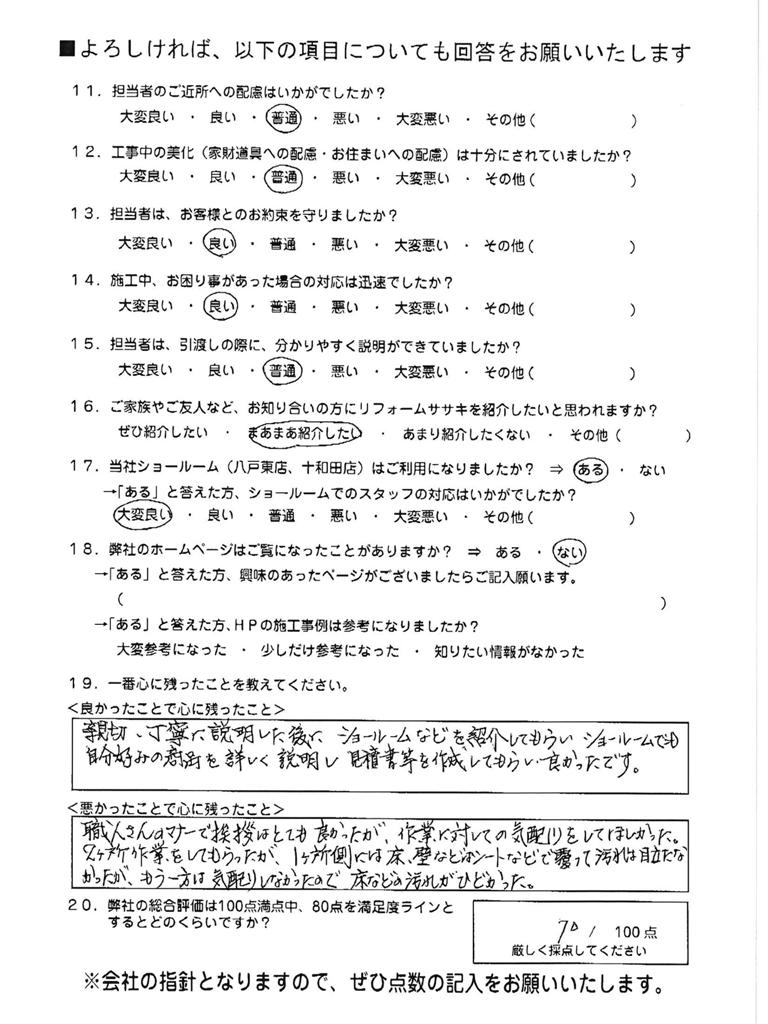 ■よろしければ、以下の項目についても回答をお願いいたします
１１．担当者のご近所への配慮はいかがでしたか？
大変良い ・ 良い ・ 普通 ・ 悪い ・ 大変悪い ・ その他（　　　　　　）
１２．工事中の美化（家財道具への配慮・お住まいへの配慮）は十分にされていましたか？
大変良い ・ 良い ・ 普通 ・ 悪い ・ 大変悪い ・ その他（　　　　　　）
１３．担当者は、お客様とのお約束を守りましたか？
大変良い ・ 良い ・ 普通 ・ 悪い ・ 大変悪い ・ その他（　　　　　　）
１４．施工中、お困り事があった場合の対応は迅速でしたか？
大変良い ・ 良い ・ 普通 ・ 悪い ・ 大変悪い ・ その他（　　　　　　）
１５．担当者は、引渡しの際に、分かりやすく説明ができていましたか？
大変良い ・ 良い ・ 普通 ・ 悪い ・ 大変悪い ・ その他（　　　　　　）
１６．ご家族やご友人など、お知り合いの方にリフォームササキを紹介したいと思われますか？
ぜひ紹介したい ・ まあまあ紹介したい ・ あまり紹介したくない ・ その他（　　　　）
１７．当社ショールーム（八戸東店、十和田店）はご利用になりましたか？ ⇒ ある ・ ない
→「ある」と答えた方、ショールームでのスタッフの対応はいかがでしたか？
大変良い ・ 良い ・ 普通 ・ 悪い ・ 大変悪い ・ その他（　　　　　　）
１８．弊社のホームページはご覧になったことがありますか？ ⇒ ある ・ ない
→「ある」と答えた方、興味のあったページがございましたらご記入願います。
（　　　　　　　　　　　　　　　　　　　　）
→「ある」と答えた方、ＨＰの施工事例は参考になりましたか？
大変参考になった ・ 少しだけ参考になった ・ 知りたい情報がなかった
１９．一番心に残ったことを教えてください。
＜良かったことで心に残ったこと＞
親切、丁寧に説明した後に ショールームなどを紹介してもらい ショールームでも
自分好みの商品を詳しく説明し 見積書等を作成してもらい良かったです。
＜悪かったことで心に残ったこと＞
職人さんのマナーで挨拶はとても良かったが、作業に対しての気配りをしてほしかった。
2ヶ所作業をしてもらったが、1ヶ所側には床、壁などはシートなどで覆って汚れは目立たな
かったが、もう一方は気配りしなかったので 床などの汚れがひどかった。
２０．弊社の総合評価は100点満点中、80点を満足度ラインと
するとどのくらいですか？
70 / 100点
厳しく採点してください
※会社の指針となりますので、ぜひ点数の記入をお願いいたします。